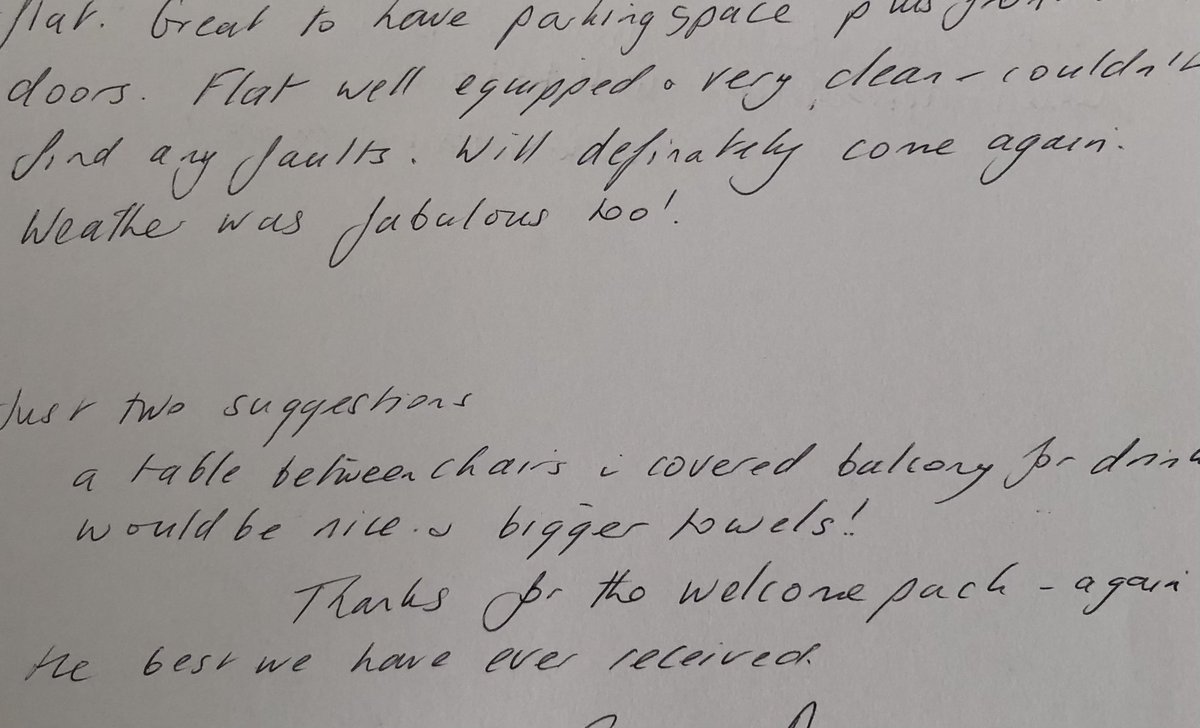 flat. Great to have parking space plus
doors. Flat well equipped & very clean - couldn't
find any faults. Will definately come again.
Weather was fabulous too!
Just two suggestions
a table between chairs i covered balcony for
would be nice. & bigger towels!
Thanks for the welcome pack - again
the best we have ever received.